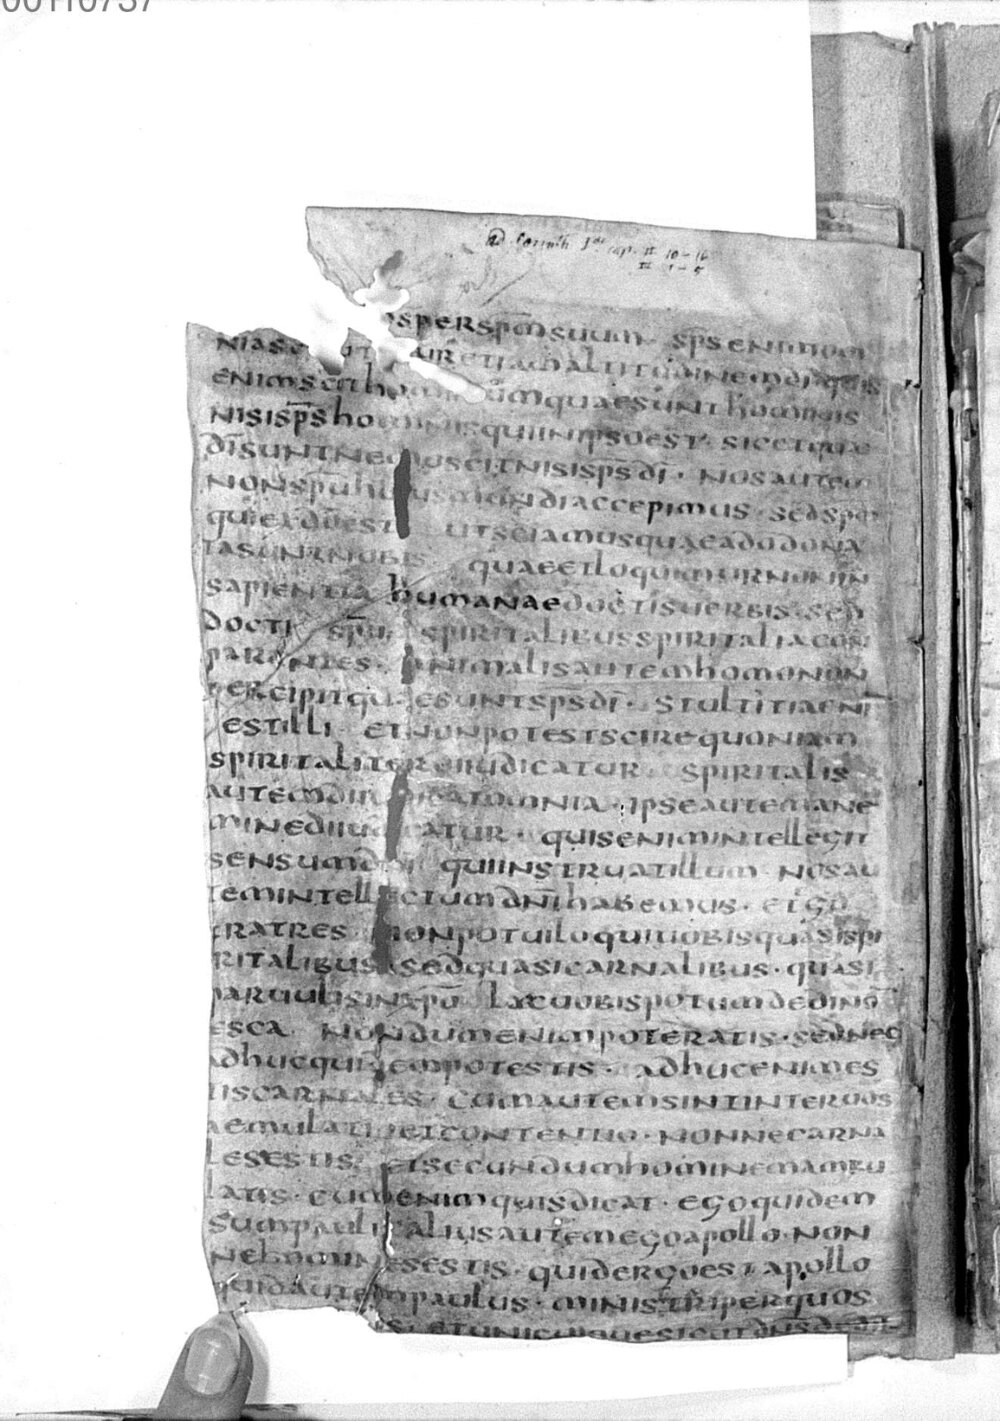 ad Corinth. Iae cap. II 10-16
III 1-5
PERSPM̄SUUM SP̄SENIMOM
ENIMSCIT UMQUAESUNTHOMINIS
NISISP̄SHOMINISQUIINIPSOEST· SICETQUAE
DĪSUNTNEMOSCITNISISP̄SDĪ· NOSAUTEM
NONSPŪHUIUSMUNDIACCEPIMUS· SEDSPM
QUIEXDŌEST UTSCIAMUSQUAEADODONA
TASUNTNOBIS QUAEETLOQUIMURNONIN
SAPIENTIA HUMANAEDOCTISUERBIS·SED
DOCTI SPŪ SPIRITALIBUSSPIRITALIACOM
PARANTES· ANIMALISAUTEMHOMONON
PERCIPITQUAESUNTSP̄SDĪ· STULTITIAENĪ
ESTILLI ETNONPOTESTSCIREQUONIAM
SPIRITALITEREIIUDICATUR SPIRITALIS
AUTEMDIIUDICATOMNIA· IPSEAUTEMANE
MINEDIIUDICATUR· QUISENIMINTELLEGIT
SENSUMDNI QUIINSTRUATILLUM NOSAU
TEMINTELLECTUMDN̄IHABEMUS· ETGO
FRATRES NONPOTUILOQUIUOBISQUASISPI
RITALIBUSSEDQUASICARNALIBUS· QUASI
PARUULISINXPŌ LACUOBISPOTUMDEDINŌ
ESCA NONDUMENIMPOTERATIS·SEDNEC
ADHUCQUIDEMPOTESTIS· ADHUCENIMES
TISCARNALES· CUMAUTEMSINTINTERUOS
AEMULATIOETCONTENTIO·NONNECARNA
LESESTIS ETSECUNDUMHOMINEMAMBU
LATIS· CUMENIMQUISDICAT· EGOQUIDEM
SUMPAULI ALIUSAUTEMEGOAPOLLO·NON
NEHOMINESESTIS· QUIDERGOEST APOLLO
QUIDAUTEMPAULUS· MINISTRIPERQUOS
ETUNICUIQUESICUTDN̄SDEDIT